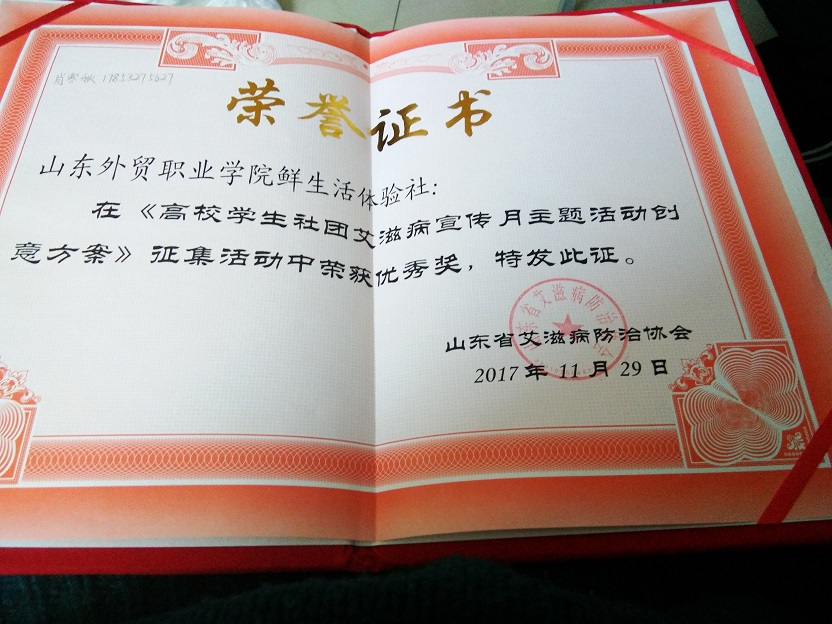 17853275627
荣誉证书
山东外贸职业学院鲜生活体验社:
在《高校学生社团艾滋病宣传月主题活动创
意方案》征集活动中荣获优秀奖，特发此证。
山东省艾滋病防治协会
2017年 11月29日